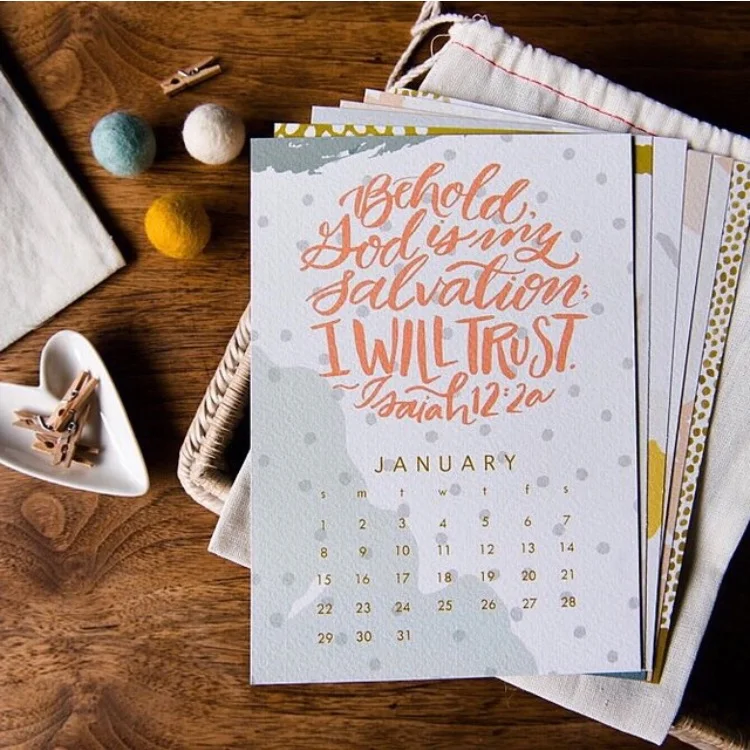 Behold,
God is my
salvation;
I WILL TRUST.
~Isaiah 12:2a
JANUARY
s m t w t f s
1 2 3 4 5 6 7
8 9 10 11 12 13 14
15 16 17 18 19 20 21
22 23 24 25 26 27 28
29 30 31